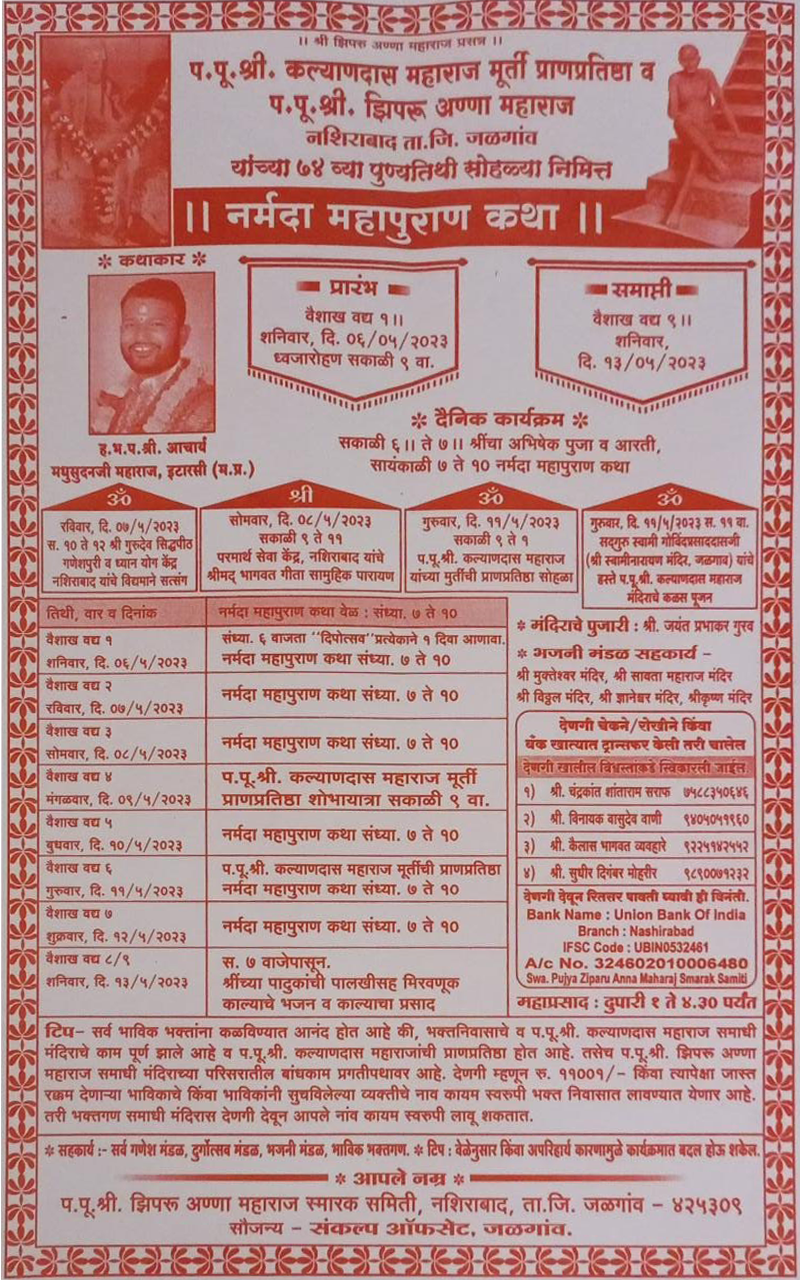 ।। श्री झिपरु अण्णा महाराज प्रसन्न ।।
प.पू.श्री. कल्याणदास महाराज मूर्ती प्राणप्रतिष्ठा व
प.पू.श्री. झिपरू अण्णा महाराज
नशिराबाद ता.जि. जळगांव
यांच्या ७४ व्या पुण्यतिथी सोहळ्या निमित्त
।। नर्मदा महापुराण कथा ।।
* कथाकार *
ह.भ.प.श्री. आचार्य
मधुसुदनजी महाराज, इटारसी (म.प्र.)
प्रारंभ
वैशाख वद्य १।।
शनिवार, दि. ०६/०५/२०२३
ध्वजारोहण सकाळी ९ वा.
समाप्ती
वैशाख वद्य ९।।
शनिवार,
दि. १३/०५/२०२३
* दैनिक कार्यक्रम *
सकाळी ६।। ते ७।। श्रींचा अभिषेक पुजा व आरती,
सायंकाळी ७ ते १० नर्मदा महापुराण कथा
ॐ
रविवार, दि. ०७/५/२०२३
स. १० ते १२ श्री गुरुदेव सिद्धपीठ
गणेशपुरी व ध्यान योग केंद्र
नशिराबाद यांचे विद्यमाने सत्संग
श्री
सोमवार, दि. ०८/५/२०२३
सकाळी ९ ते ११
परमार्थ सेवा केंद्र, नशिराबाद यांचे
श्रीमद् भागवत गीता सामुहिक पारायण
ॐ
गुरुवार, दि. ११/५/२०२३
सकाळी ९ ते १
प.पू.श्री. कल्याणदास महाराज
यांच्या मुर्तीची प्राणप्रतिष्ठा सोहळा
ॐ
गुरुवार, दि. ११/५/२०२३ स. ११ वा.
सद्गुरु स्वामी गोविंदप्रसाददासजी
(श्री स्वामीनारायण मंदिर, जळगाव) यांचे
हस्ते प.पू.श्री. कल्याणदास महाराज
मंदिराचे कळस पूजन
तिथी, वार व दिनांक
नर्मदा महापुराण कथा वेळ : संध्या. ७ ते १०
वैशाख वद्य १
शनिवार, दि. ०६/५/२०२३
संध्या. ६ वाजता "दिपोत्सव"प्रत्येकाने १ दिवा आणावा.
नर्मदा महापुराण कथा संध्या. ७ ते १०
वैशाख वद्य २
रविवार, दि. ०७/५/२०२३
नर्मदा महापुराण कथा संध्या. ७ ते १०
वैशाख वद्य ३
सोमवार, दि. ०८/५/२०२३
नर्मदा महापुराण कथा संध्या. ७ ते १०
वैशाख वद्य ४
मंगळवार, दि. ०९/५/२०२३
प.पू.श्री. कल्याणदास महाराज मूर्ती
प्राणप्रतिष्ठा शोभायात्रा सकाळी ९ वा.
वैशाख वद्य ५
बुधवार, दि. १०/५/२०२३
नर्मदा महापुराण कथा संध्या. ७ ते १०
वैशाख वद्य ६
गुरुवार, दि. ११/५/२०२३
प.पू.श्री. कल्याणदास महाराज मूर्तीची प्राणप्रतिष्ठा
नर्मदा महापुराण कथा संध्या. ७ ते १०
वैशाख वद्य ७
शुक्रवार, दि. १२/५/२०२३
नर्मदा महापुराण कथा संध्या. ७ ते १०
वैशाख वद्य ८/९
शनिवार, दि. १३/५/२०२३
स. ७ वाजेपासून.
श्रींच्या पादुकांची पालखीसह मिरवणूक
काल्याचे भजन व काल्याचा प्रसाद
* मंदिराचे पुजारी : श्री. जयंत प्रभाकर गुरव
* भजनी मंडळ सहकार्य -
श्री मुक्तेश्वर मंदिर, श्री सावता महाराज मंदिर
श्री विठ्ठल मंदिर, श्री ज्ञानेश्वर मंदिर, श्रीकृष्ण मंदिर
देणगी चेकने/रोखीने किंवा
बँक खात्यात ट्रान्सफर केली तरी चालेल
देणगी खालील विश्वस्तांकडे स्विकारली जाईल
१) श्री. चंद्रकांत शांताराम सराफ ७५८८३५०६४६
२) श्री. विनायक वासुदेव वाणी ९४०५०५१९६०
३) श्री. कैलास भागवत व्यवहारे ९२२५१४२५५२
४) श्री. सुधीर दिगंबर मोहरीर ९८९००७१२३२
देणगी देवून रितसर पावती घ्यावी ही विनंती.
Bank Name : Union Bank Of India
Branch : Nashirabad
IFSC Code : UBIN0532461
A/c No. 324602010006480
Swa. Pujya Ziparu Anna Maharaj Smarak Samiti
महाप्रसाद : दुपारी १ ते ४.३० पर्यंत
टिप- सर्व भाविक भक्तांना कळविण्यात आनंद होत आहे की, भक्तनिवासाचे व प.पू.श्री. कल्याणदास महाराज समाधी
मंदिराचे काम पूर्ण झाले आहे व प.पू.श्री. कल्याणदास महाराजांची प्राणप्रतिष्ठा होत आहे. तसेच प.पू.श्री. झिपरू अण्णा
महाराज समाधी मंदिराच्या परिसरातील बांधकाम प्रगतीपथावर आहे. देणगी म्हणून रु. ११००१/- किंवा त्यापेक्षा जास्त
रक्कम देणाऱ्या भाविकाचे किंवा भाविकांनी सुचविलेल्या व्यक्तीचे नाव कायम स्वरुपी भक्त निवासात लावण्यात येणार आहे.
तरी भक्तगण समाधी मंदिरास देणगी देवून आपले नांव कायम स्वरुपी लावू शकतात.
* सहकार्य :- सर्व गणेश मंडळ, दुर्गोत्सव मंडळ, भजनी मंडळ, भाविक भक्तगण. * टिप : वेळेनुसार किंवा अपरिहार्य कारणामुळे कार्यक्रमात बदल होऊ शकेल.
* आपले नम्र *
प.पू.श्री. झिपरू अण्णा महाराज स्मारक समिती, नशिराबाद, ता.जि. जळगांव - ४२५३०९
सौजन्य - संकल्प ऑफसेट, जळगांव.